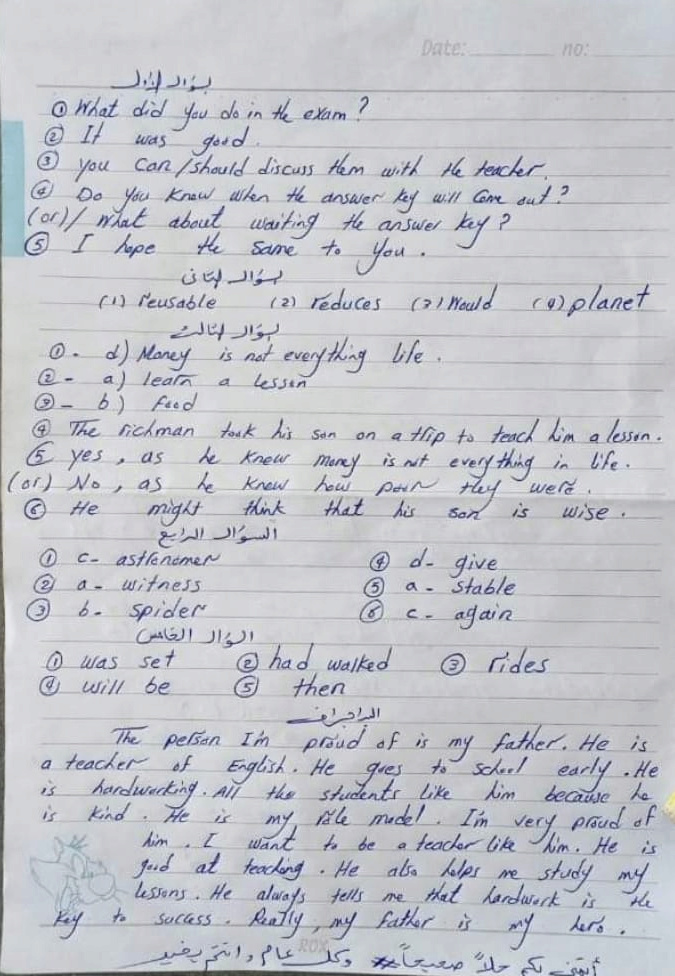 Date: no:
السؤال الأول
① What did you do in the exam?
② It was good.
③ you can/should discuss them with the teacher.
④ Do you know when the answer key will come out?
(or)/ What about waiting the answer key?
⑤ I hope the same to you.
السؤال الثانى
(1) reusable (2) reduces (3) Would (4) planet
السؤال الثالث
①- d) Money is not everything life.
②- a) learn a lesson
③- b) food
④ The richman took his son on a trip to teach him a lesson.
⑤ yes, as he knew money is not everything in life.
(or) No, as he knew how poor they were.
⑥ He might think that his son is wise.
السؤال الرابع
① c- astronomer ④ d- give
② a- witness ⑤ a- stable
③ b- spider ⑥ c- again
السؤال الخامس
① was set ② had walked ③ rides
④ will be ⑤ then
البراجراف
The person I'm proud of is my father. He is
a teacher of English. He goes to school early. He
is hardworking. All the students like him because he
is kind. He is my role model. I'm very proud of
him. I want to be a teacher like him. He is
good at teaching. He also helps me study my
lessons. He always tells me that hardwork is the
key to success. Really, my father is my hero.
ROX
أتمنى لكم حلاً صحيحاً# وكل عام وانتم بخير